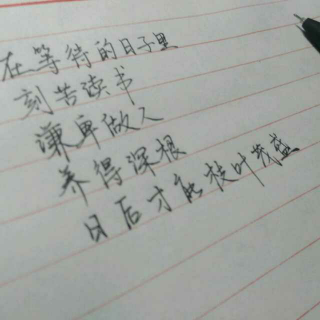 在等待的日子里
刻苦读书
谦卑做人
养得深根
日后才能枝叶茂盛